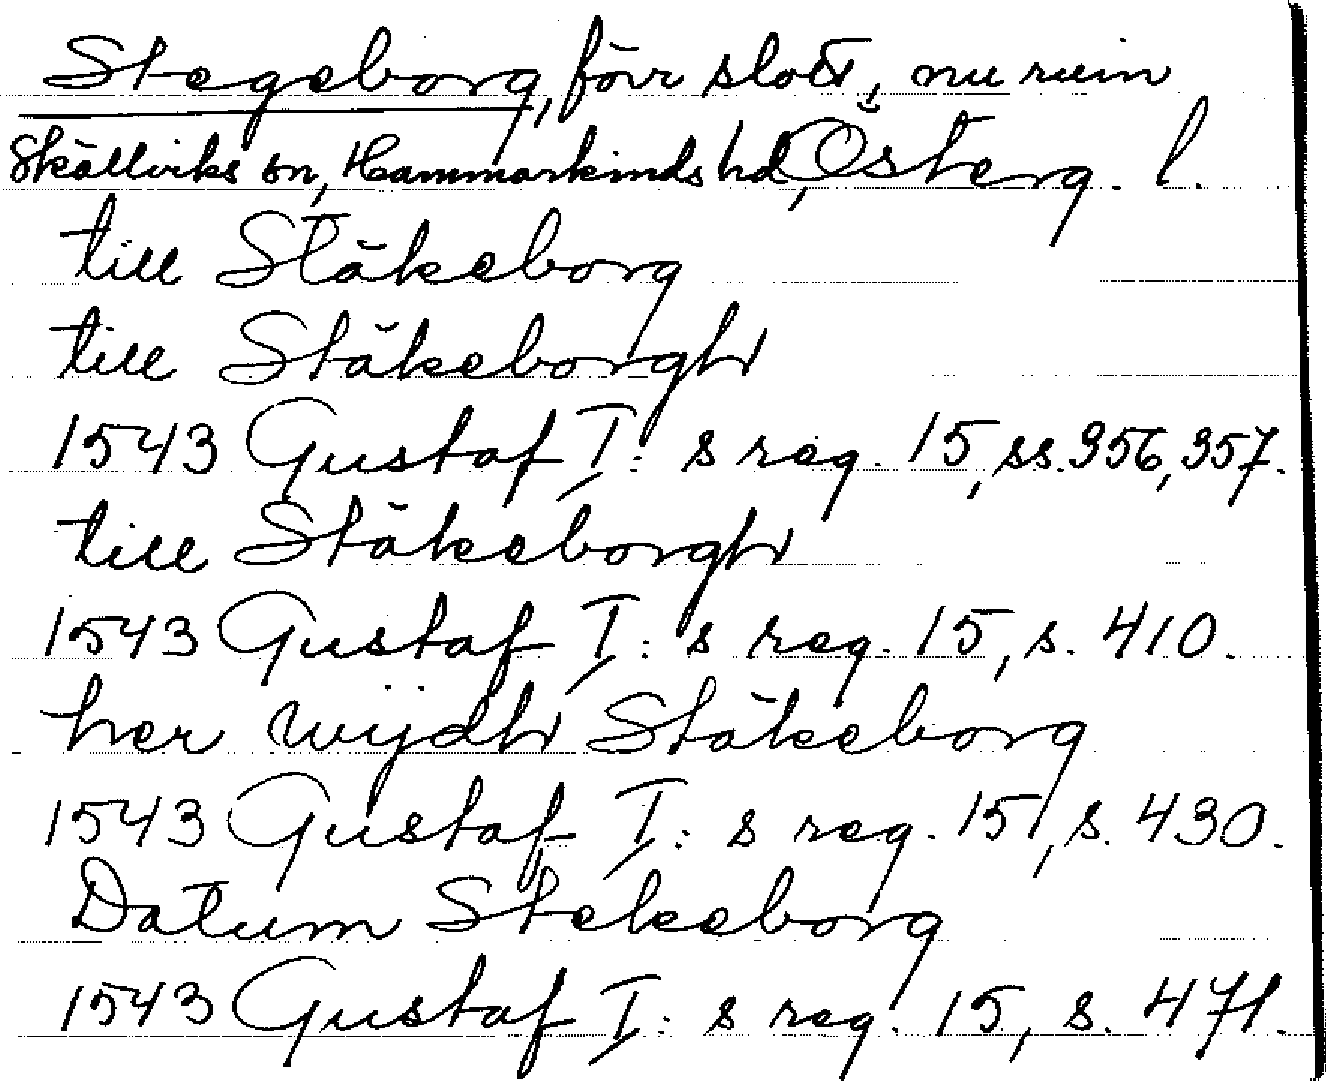 Stegeborg, förr slott, nu ruin
Skällviks sn, Hammarkinds hd, Österg. l.
till Stäkeborg
till Stäkeborgh
1543 Gustaf I: s reg. 15, ss. 356, 357.
till Stäkeborgh
1543 Gustaf I: s reg. 15, s. 410.
her wijdh Stäkeborg
1543 Gustaf I: s reg. 15, s. 430.
Datum Stekeborg
1543 Gustaf I: s reg. 15, s. 471.